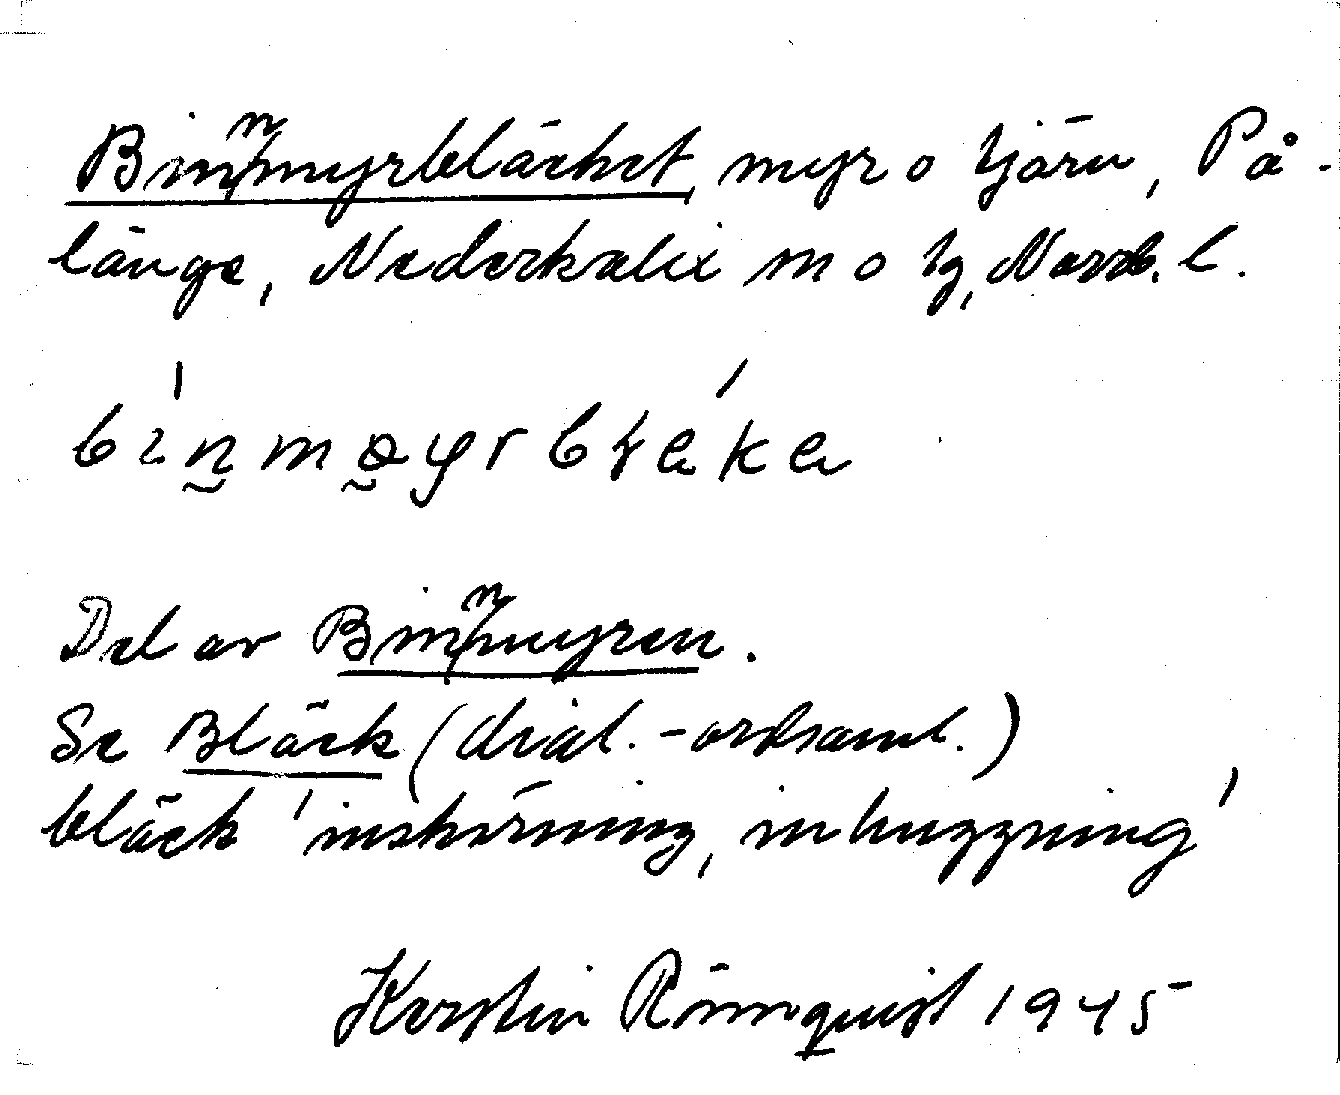 Binnmyrbläcket, myr o tjärn, På-
länge, Nederkalix sn o tg, Norrb. l.
Del av Binnmyren.
Se Bläck (dial.-ordsaml.)
bläck 'inskärning, inhuggning'
Kerstin Rönnquist 1945